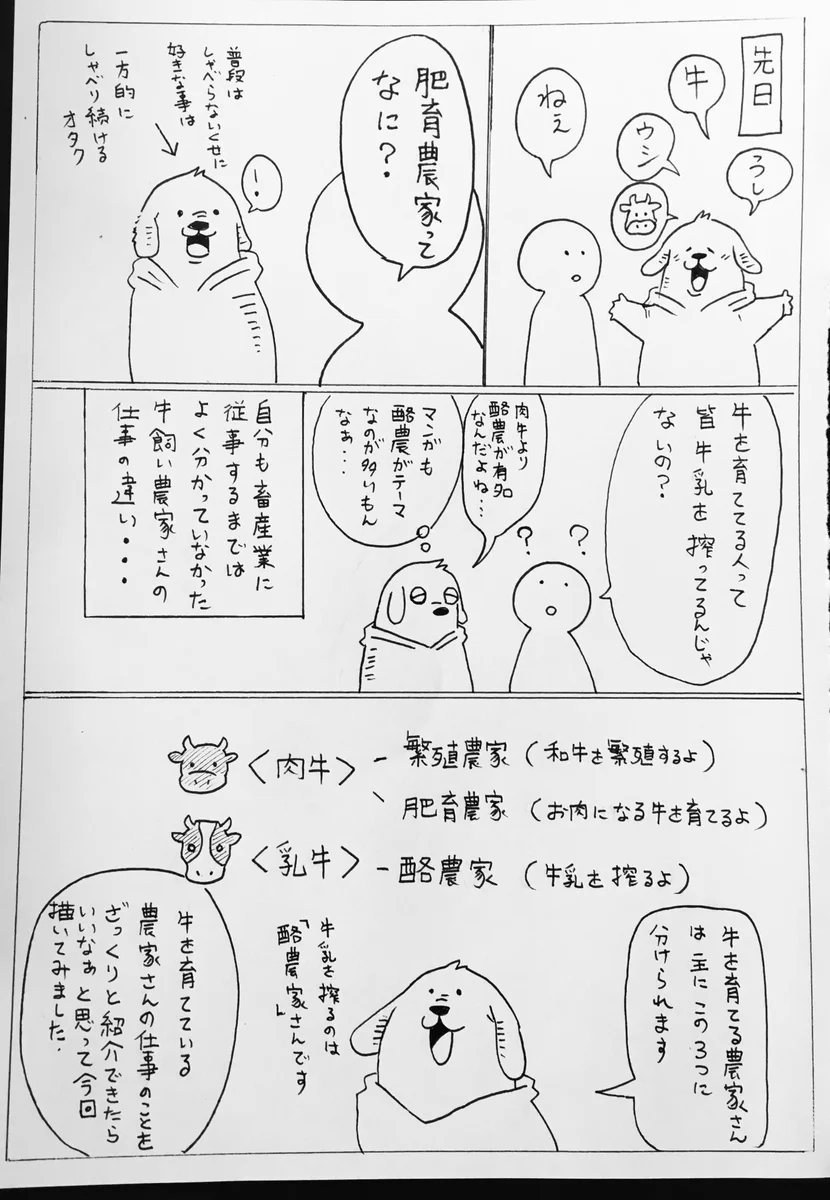 先日
牛
ウシ
うし
ねぇ
肥育農家って
なに?
!
普段は
しゃべらないくせに
好きな事は
一方的に
しゃべり続ける
オタク
牛を育ててる人って
皆牛乳を搾ってるんじゃ
ないの?
?
?
肉牛より
酪農が有名
なんだよね…
マンガも
酪農がテーマ
なのが多いもん
なぁ…
自分も畜産業に
従事するまでは
よく分かっていなかった
牛飼い農家さんの
仕事の違い・・・
〈肉牛〉-繁殖農家(和牛を繁殖するよ)
肥育農家(お肉になる牛を育てるよ)
〈乳牛〉-酪農家(牛乳を搾るよ)
牛を育てる農家さん
は主にこの3つに
分けられます
牛乳を搾るのは
「酪農家」さんです
牛を育てている
農家さんの仕事のことを
ざっくりと紹介できたら
いいなぁと思って今回
描いてみました.